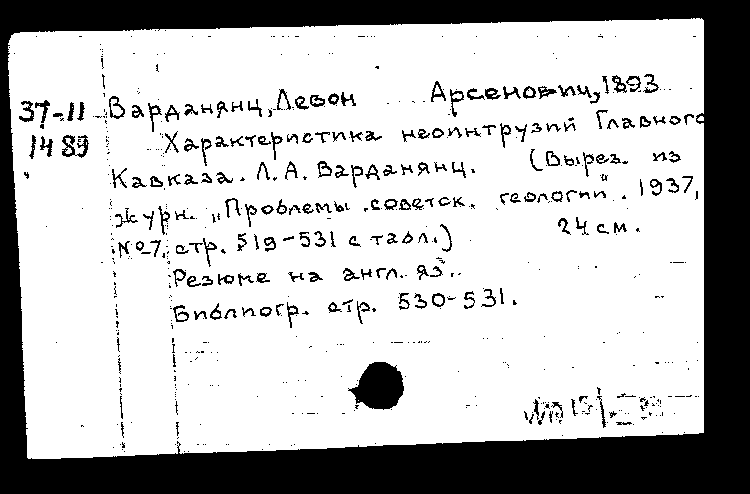 37-11 Варданянц, Левон Арсенович, 1893
1489 Характеристика неоинтрузий Главного
Кавказа. Л. А. Варданянц. (Вырез. из
журн. „Проблемы советск. геологии". 1937,
№7, стр. 519-531 с табл.) 24 см.
Резюме на англ. яз..
Библиогр. стр. 530-531.